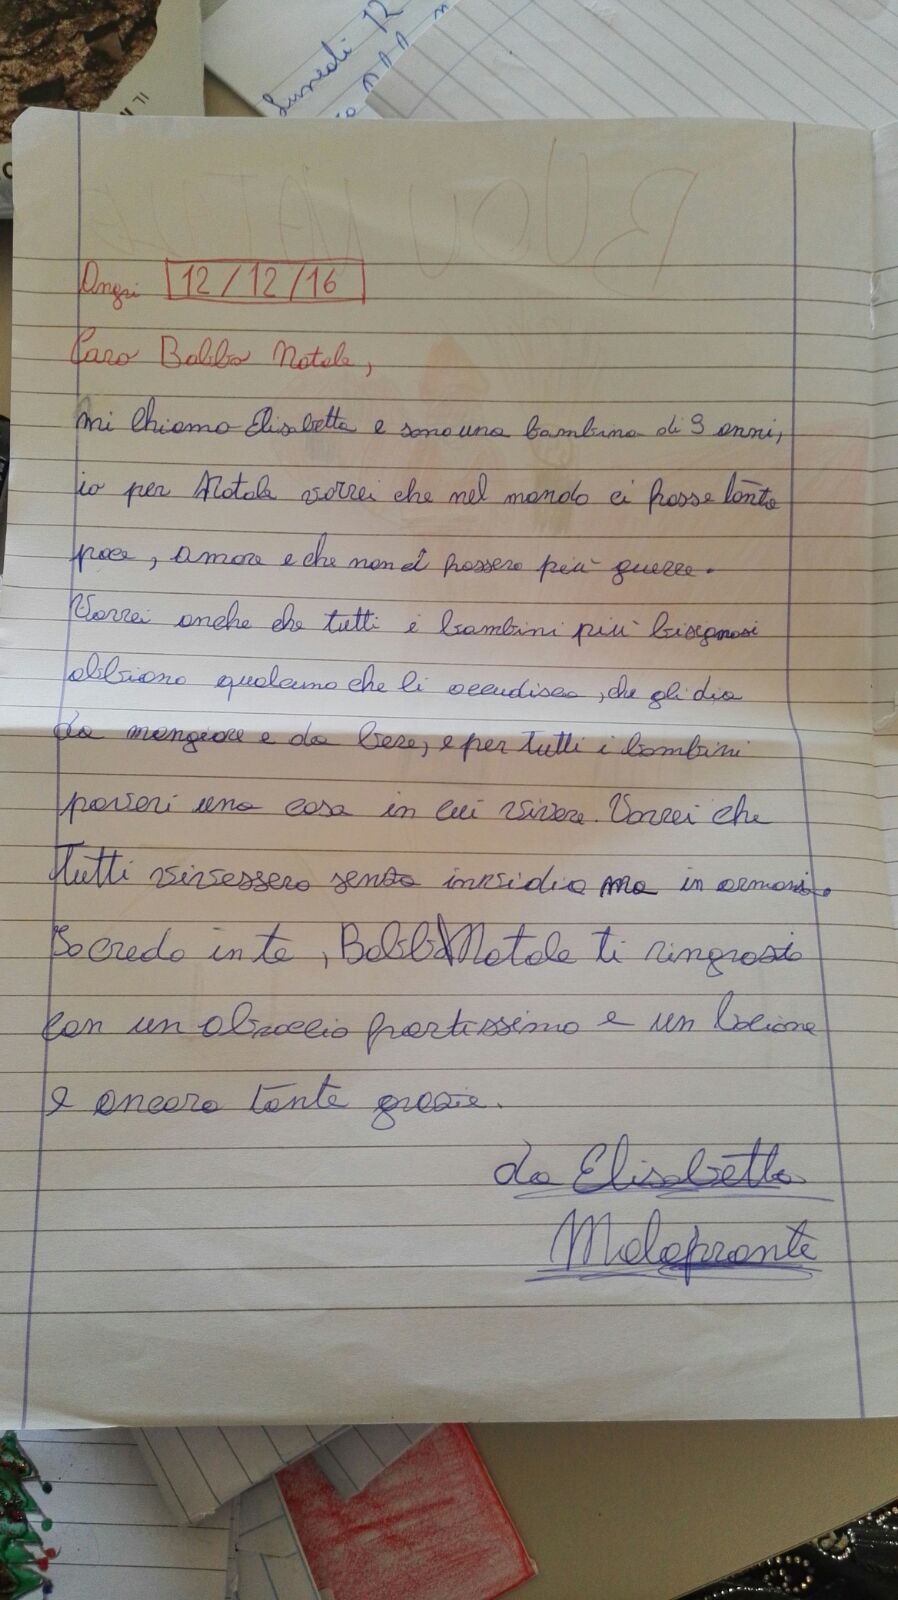 Lunedì 12
BUON NATALE
Angri 12/12/16
Caro Babbo Natale,
mi chiamo Elisabetta e sono una bambina di 9 anni,
io per Natale vorrei che nel mondo ci fosse tanta
pace, amore e che non ci fossero più guerre.
Vorrei anche che tutti i bambini più bisognosi
abbiano qualcuno che li accudisca, che gli dia
da mangiare e da bere, e per tutti i bambini
poveri una casa in cui vivere. Vorrei che
tutti vivessero senza invidia ma in armonia.
Io credo in te, Babbo Natale ti ringrazio
con un abbraccio fortissimo e un bacione
e ancora tante grazie.
da Elisabetta
Malafronte